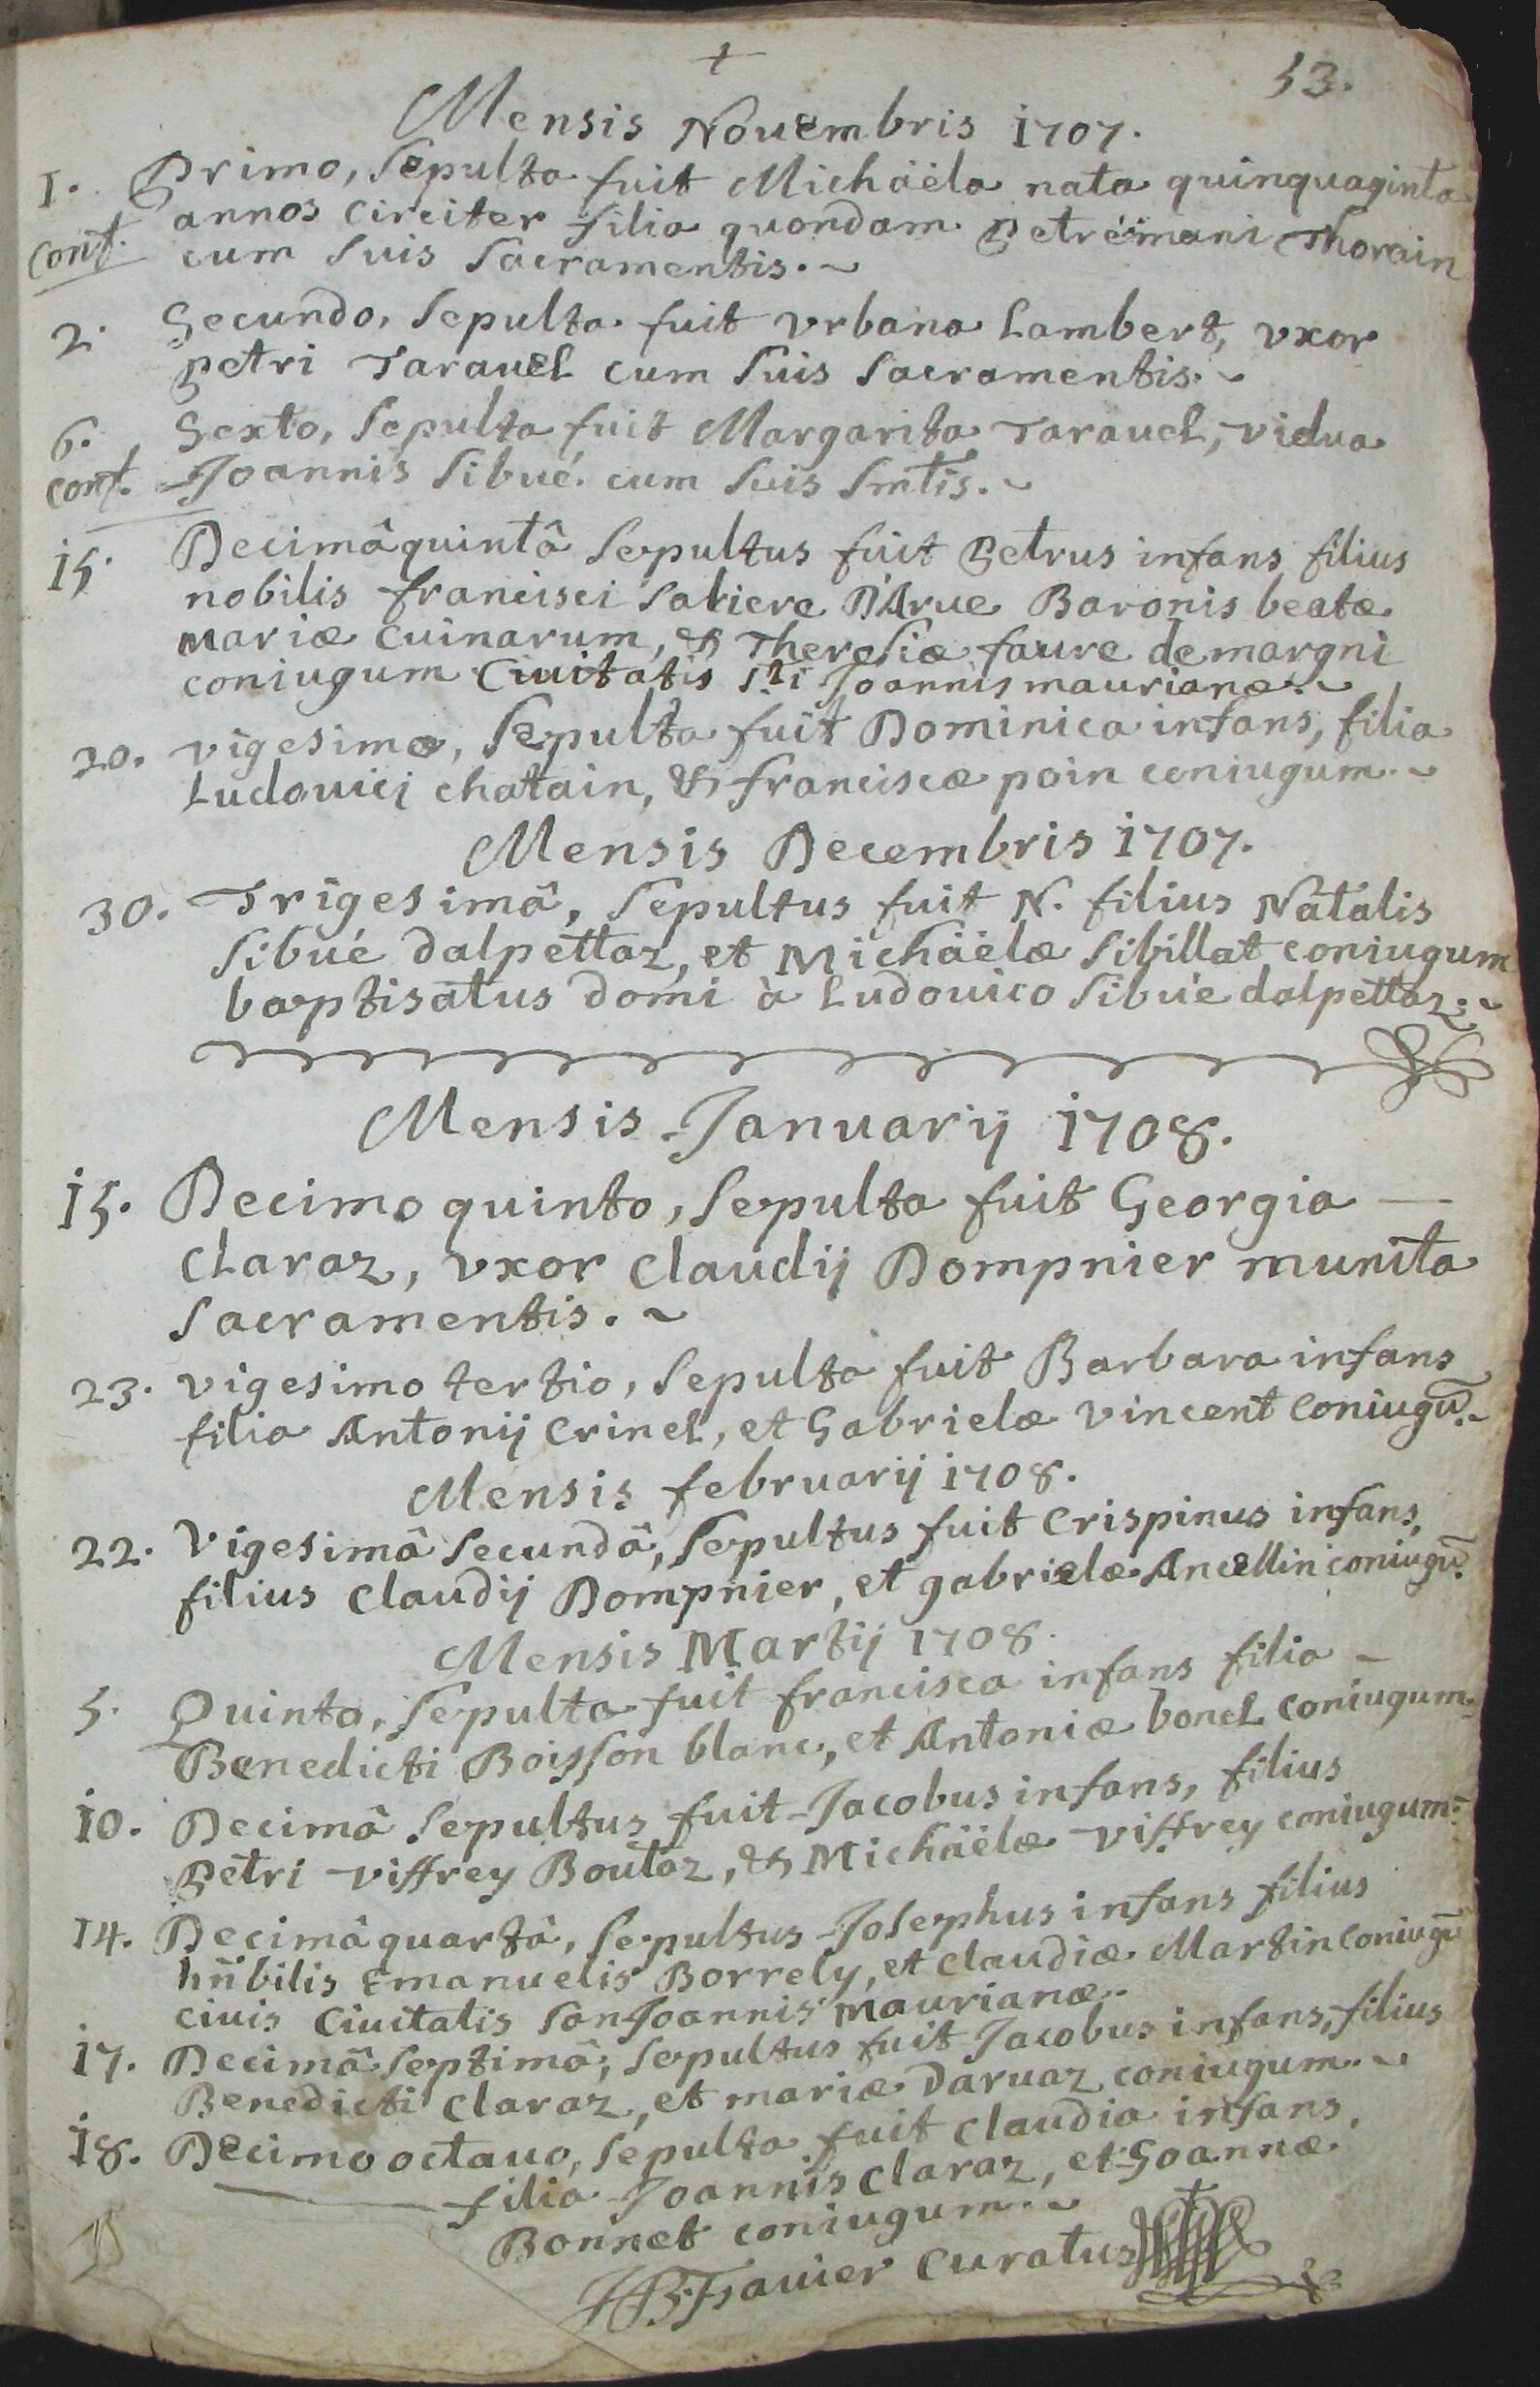 +
53.
Mensis Nouembris 1707.
1. Primo, Sepulta fuit Michäela nata quinquaginta
annos circiter filia quondam Petremani Thorain
conf. cum suis sacramentis.~
2. Secundo, sepulta fuit vrbana Lambert, vxor
petri Tarauel cum suis sacramentis.~
6. Sexto, sepulta fuit Margarita Tarauel, vidua
conf. Joannis sibué cum suis smtis.~
15. Decimâquintâ sepultus fuit Petrus infans filius
nobilis francisci saliere D'Arue Baronis beatæ
mariæ cuinarum, & Theresiæ faure demargni
coniugum Ciuitatis sti Joannis maurianæ.~
20. vigesima, sepulta fuit Dominica infans, filia
Ludouici chatain, & franciscæ poin coniugum.~
Mensis Decembris 1707.
30. Trigesimâ, sepultus fuit N. filius Natalis
sibué dalpettaz, et Michäelæ sibillat coniugum
baptisatus domi à Ludouico sibué dalpettaz.~
Mensis Januarij 1708.
15. Decimo quinto, sepulta fuit Georgia —
Claraz, vxor Claudij Dompnier munita
sacramentis.~
23. vigesimo tertio, sepulta fuit Barbara infans
filia Antonij Crinel, et Gabrielæ vincent coniugū.~
Mensis februarij 1708.
22. Vigesimâ secundâ, sepultus fuit Crispinus infans,
filius Claudij Dompnier, et gabrielæ Ancellin coniugū.
Mensis Martij 1708.
5. Quinta, sepulta fuit francisca infans filia -
Benedicti Boisson blanc, et Antoniæ bonel coniugum.
10. Decimâ sepultus fuit Jacobus infans, filius
Petri viffrey Boutaz, & Michäelæ viffrey coniugum.
14. Decimâquartâ, sepultus Josephus infans filius
hñbilis Emanuelis Borrely, et Claudiæ Martin coniugū
ciuis Ciuitatis san Joannis maurianæ.
17. Decimâ septimâ, sepultus fuit Jacobus infans, filius
Benedicti Claraz, et mariæ Daruaz coniugum.~
18. Decimo octauo, sepulta fuit Claudia infans,
filia Joannis Claraz, et Joannæ
Bonnet coniugum.~
Curatus